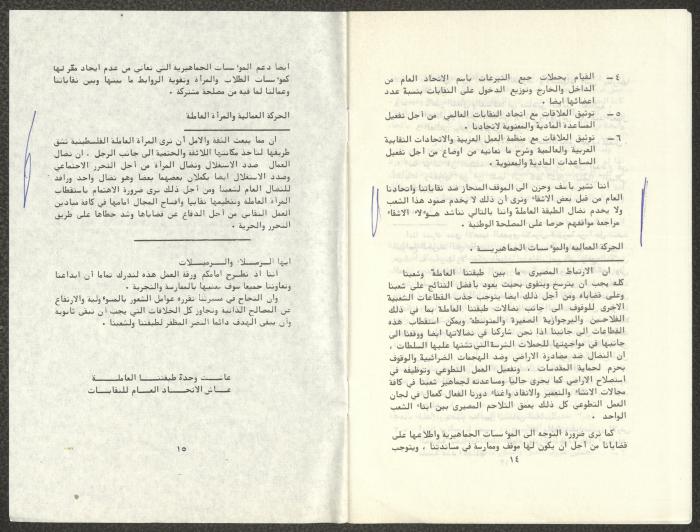 ٤ – القيام بحملات جمع التبرعات باسم الاتحاد العام من
الداخل والخارج وتوزيع الدخول على النقابات بنسبة عدد
اعضائها ايضا .
٥ – توثيق العلاقات مع اتحاد النقابات العالمي من أجل تفعيل
المساعدة المادية والمعنوية لاتحادنا .
٦ – توثيق العلاقات مع منظمة العمل العربية والاتحادات النقابية
العربية والعالمية وشرح ما نعانيه من اوضاع من أجل تفعيل
المساعدات المادية والمعنوية .
اننا نشير بأسف وحزن الى الموقف المنحاز ضد نقاباتنا واتحادنا
العام من قبل بعض الاشقاء ونرى أن ذلك لا يخدم صمود هذا الشعب
ولا يخدم نضال الطبقة العاملة واننا بالتالي نناشد هؤلاء الاشقاء
مراجعة مواقفهم حرصا على المصلحة الوطنية .
الحركة العمالية والمؤسسات الجماهيرية .
ان الارتباط المصيري ما بين طبقتنا العاملة وشعبنا
كله يجب ان يترسخ ويتقوى بحيث يعود بأفضل النتائج على شعبنا
وعلى قضاياه ومن أجل ذلك ايضا يتوجب جذب القطاعات الشعبية
الاخرى للوقوف الى جانب نضالات طبقتنا العاملة بما في ذلك
الفلاحين والبرجوازية الصغيرة والمتوسطة ويمكن استقطاب هذه
القطاعات الى جانبنا اذا نحن شاركنا في نضالاتها ايضا ووقفنا الى
جانبها في مواجهتها للحملات الشرسة التي تشنها عليها السلطات ،
ان النضال ضد مصادرة الاراضي وضد الهجمات الضرائبية والوقوف
بحزم لحماية المقدسات ، وتفعيل العمل التطوعي وتوظيفه في
استصلاح الاراضي كما يجري حاليا ومساعدته لجماهير شعبنا في كافة
مجالات الانشاء والتعمير والانقاذ واغناء دورنا الفعال كعمال في لجان
العمل التطوعي كل ذلك يعمق التلاحم المصيري بين ابناء الشعب
الواحد .
كما نرى ضرورة التوجه الى المؤسسات الجماهيرية واطلاعها على
قضايانا من أجل ان يكون لها موقف وممارسة في مساندتنا ، ويتوجب
١٤
ايضا دعم المؤسسات الجماهيرية التي تعاني من عدم ايجاد مقر لها
كمؤسسات الطلاب والمرأة وتقوية الروابط ما بينها وبين نقاباتنا
وعمالنا لما فيه من مصلحة مشتركة .
الحركة العمالية والمرأة العاملة
ان مما يبعث الثقة والامل أن نرى المرأة العاملة الفلسطينية تشق
طريقها لتأخذ مكانتها اللائقة والحتمية الى جانب الرجل ، ان نضال
العمال ضد الاستغلال ونضال المرأة من أجل التحرر الاجتماعي
وضد الاستغلال ايضا يكملان بعضهما بعضا وهو نضال واحد ورافد
للنضال العام لشعبنا ومن أجل ذلك نرى ضرورة الاهتمام باستقطاب
المرأة العاملة وتنظيمها نقابيا وافساح المجال امامها في كافة ميادين
العمل النقابي من أجل الدفاع عن قضاياها وشد خطاها على طريق
التحرر والحرية .
ايها الزملاء والزميلات
اننا اذ نطرح امامكم ورقة العمل هذه لندرك تماما أن ابداعنا
وتعاوننا جميعا سوف يغنيها بالممارسة والتجربة .
وان النجاح في مسيرتنا تقرره عوامل الشعور بالمسؤولية والارتفاع
عن المصالح الذاتية وتجاوز كل الخلافات التي يجب أن تبقى ثانوية
وأن يبقى الهدف دائما النصر المظفر لطبقتنا ولشعبنا .
عاشت وحدة طبقتنا العاملة
عاش الاتحاد العام للنقابات
١٥